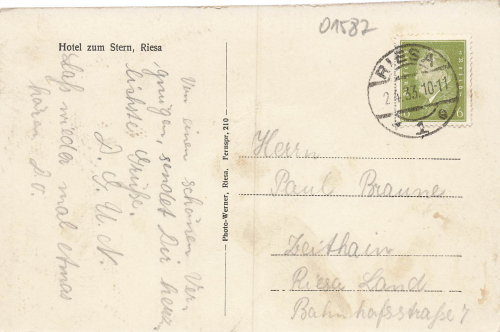 01587
Hotel zum Stern, Riesa
Von einen schönen Ver-
gnügen, sendet Dir herz
lichste Grüße.
D. G. U. N.
Laß wieder mal etwas
hören D.O.
Photo-Werner, Riesa, Fernspr. 210
RIESA
2 33.10-11
1 e
6
Herrn
Paul Braune
Zeithain
Riesa Land
Bahnhofsstraße 7